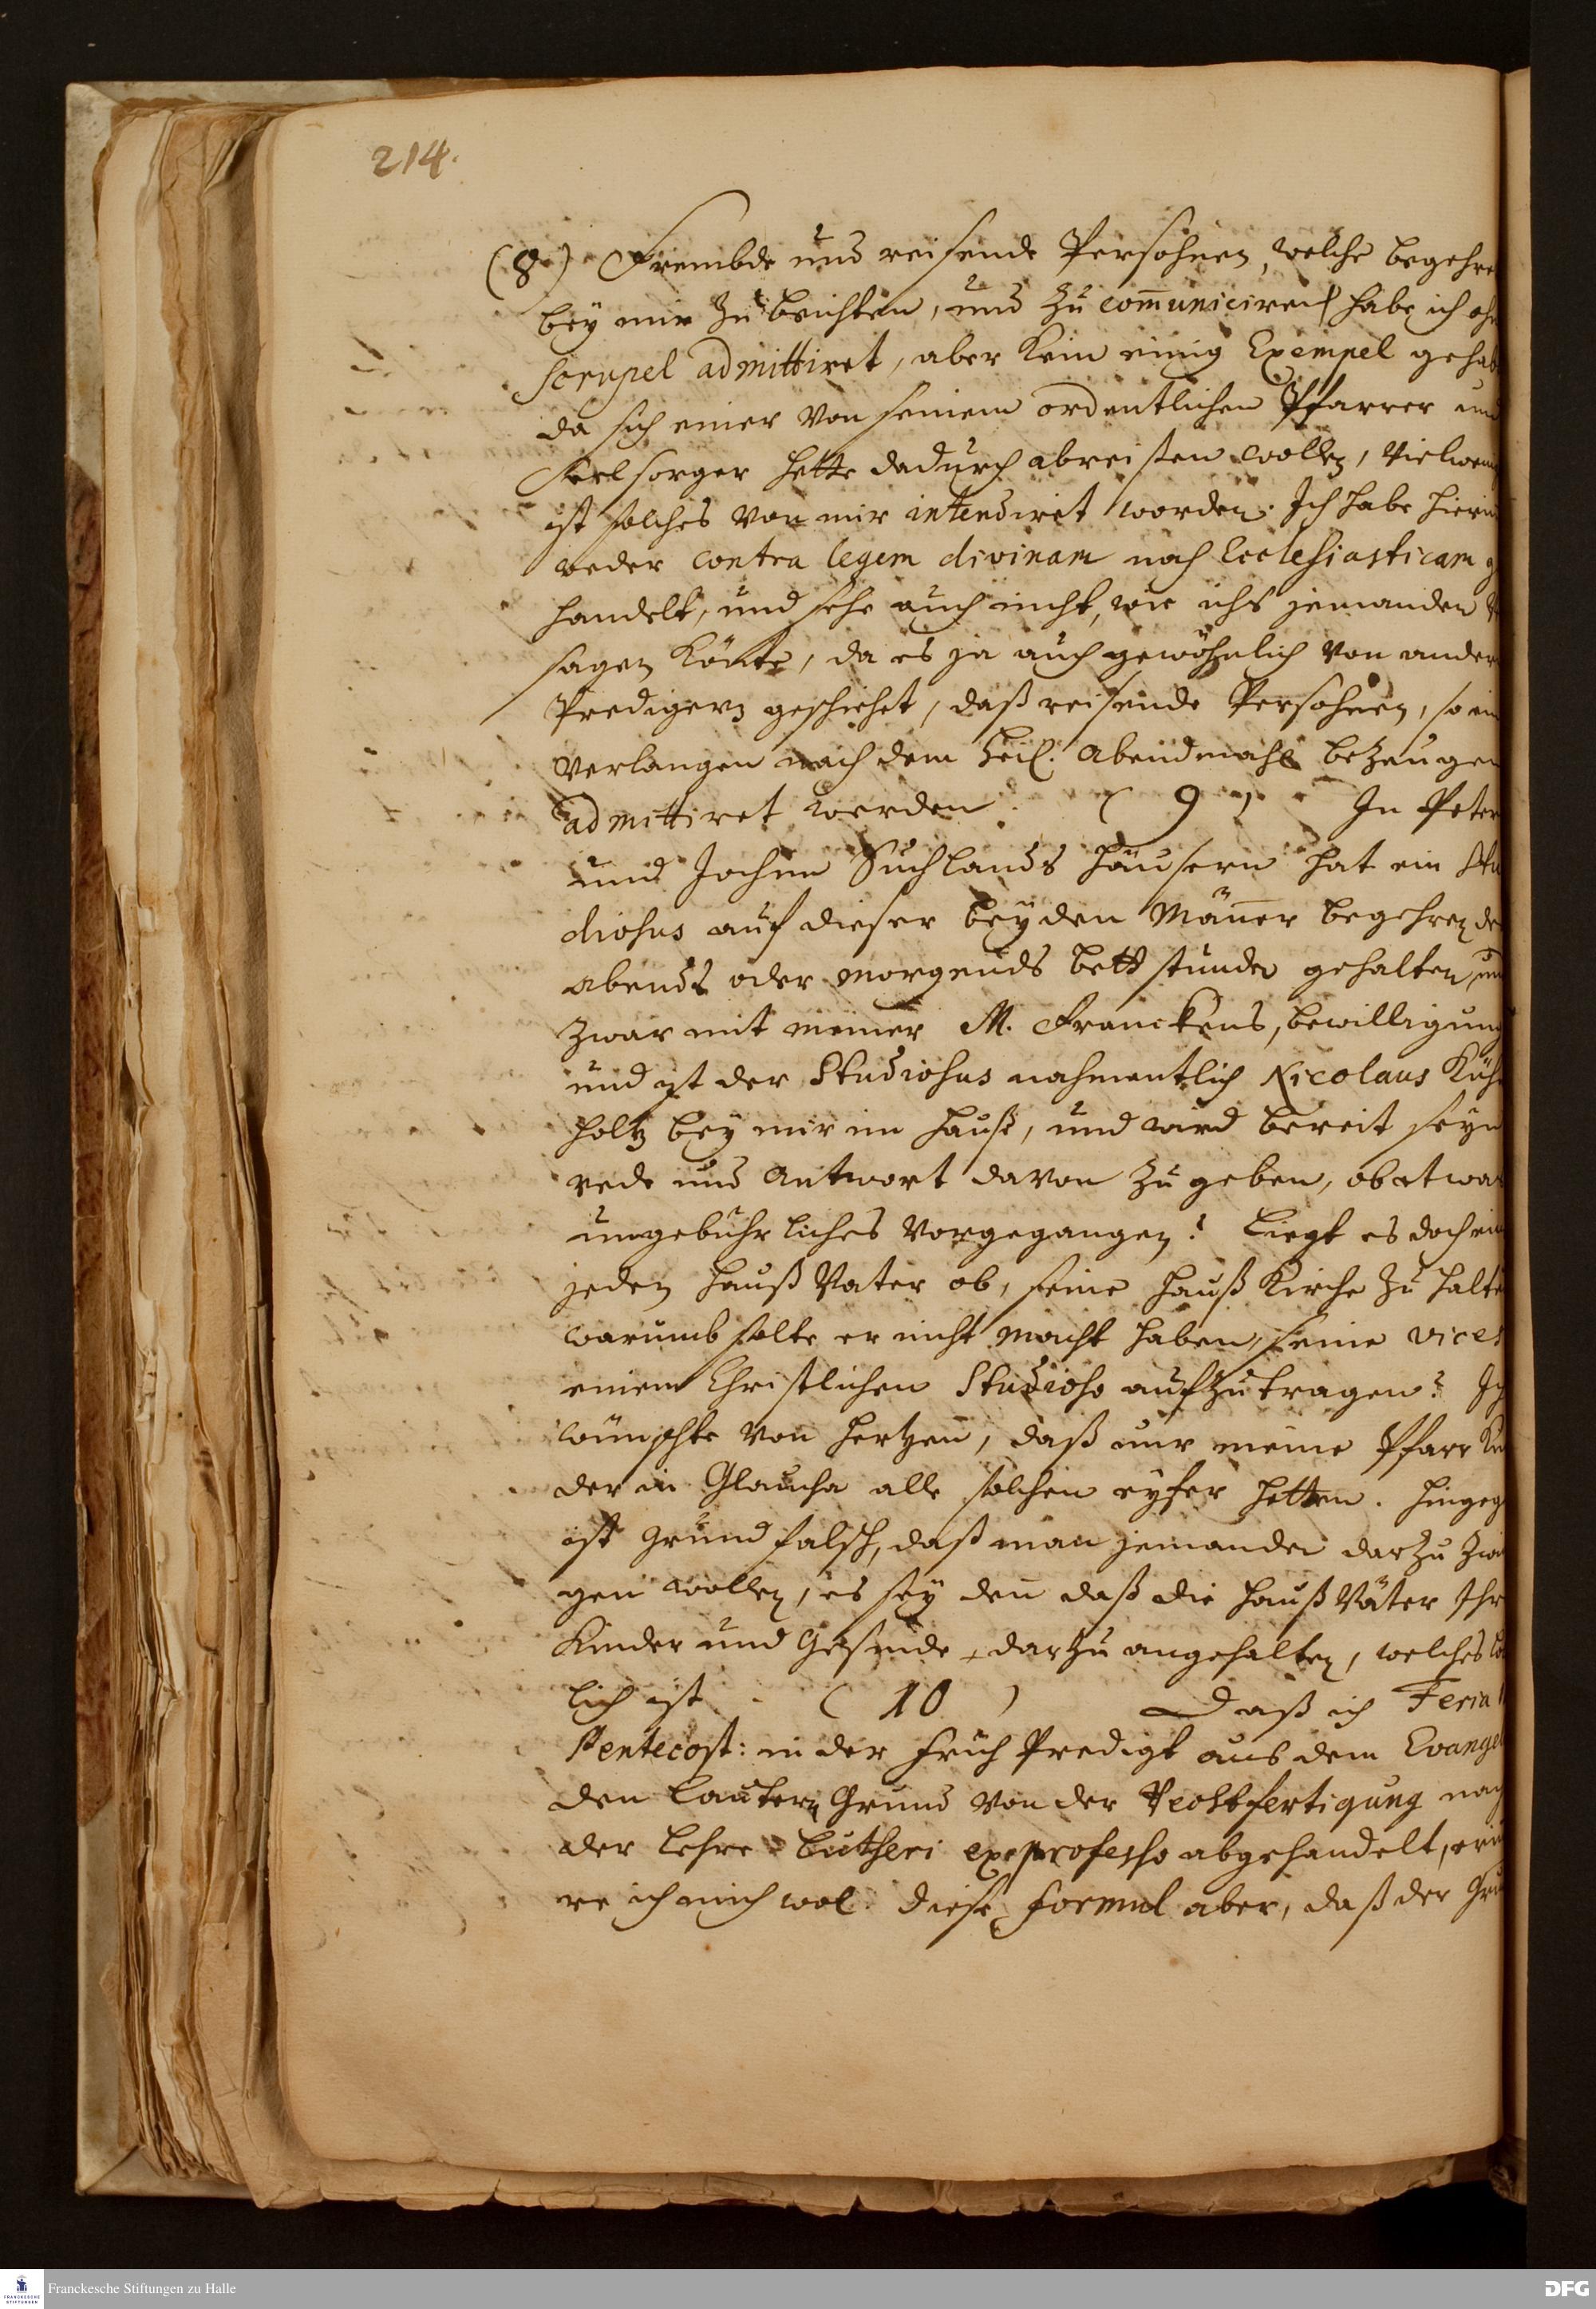 214.
(8) Frembde und reisende Persohnen, welche begehre
bey mir zu beichten, und zu com̄uniciren habe ich oh
scrupel admittiret, aber kein einig Exempel gehab
da sich einer von seinem ordentlichen Pfarrer und
Seelsorger hette dadurch abreißen wollen, vielwen
ist solches von mir intendiret worden. Ich habe hierin
weder contra legem divinam noch Ecclesiasticam g
handelt, und sehe auch nicht, wie ichs jemanden
sagen könte, da es ja auch gewöhnlich von ander
Predigern geschiehet, daß reisende Persohnen, so ein
verlangen nach dem heil. Abendmahl bezeugen
admittiret werden. (9) In Peter
und Jochim Suchlands häusern hat ein Stu
diosus auf dieser beyden Mäñer begehren de
abends oder morgends bettstunden gehalten, un
zwar mit meiner M. Franckens, bewilligung
und ist der Studiosus nahmentlich Nicolaus Küh
holtz bey mir im hauß, und wird bereit seyn
rede und Antwort davon zu geben, ob etwas
ungebührliches vorgegangen? Liegt es doch ein
jeden Hauß Vater ob, seine Hauß Kirche zu halte
warumb solte er nicht macht haben, seine vices
einem Christlichen Studioso aufzutragen? Ich
wünschte von hertzen, daß nur meine Pfarr Kin
der in Glaucha alle solchen eyfer hetten. Hingeg
ist grund falsch, daß man jemanden darzu zwin
gen wollen, es sey deñ daß die Hauß Väter Ihr
Kinder und Gesinde darzu angehalten, welches lö
lich ist. (10) Daß ich Feria
Pentecost: in der früh Predigt aus dem Evangel
den lautern Grund von der Rechtfertigung nach
der lehre Lutheri ex professo abgehandelt, erin
re ich mich wol. Diese formul aber, daß der Gru
Franckesche Stiftungen zu Halle
FRANCKESCHE STIFTUNGEN
DFG